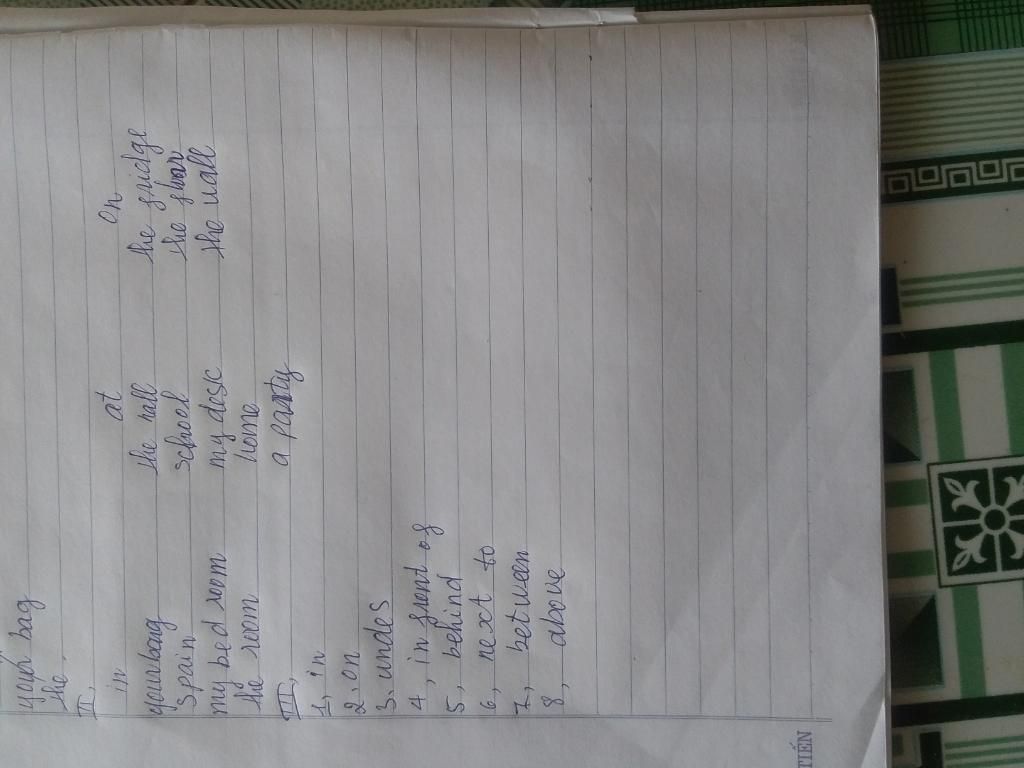 your bag
the.
II,
in at on
your bang the nall the fridge
Spain school the floor
my bed room my desk the wall
the room home
III, a party
1, in
2, on
3, undes
4, in front of
5, behind
6, next to
7, between
8, above
TIẾN